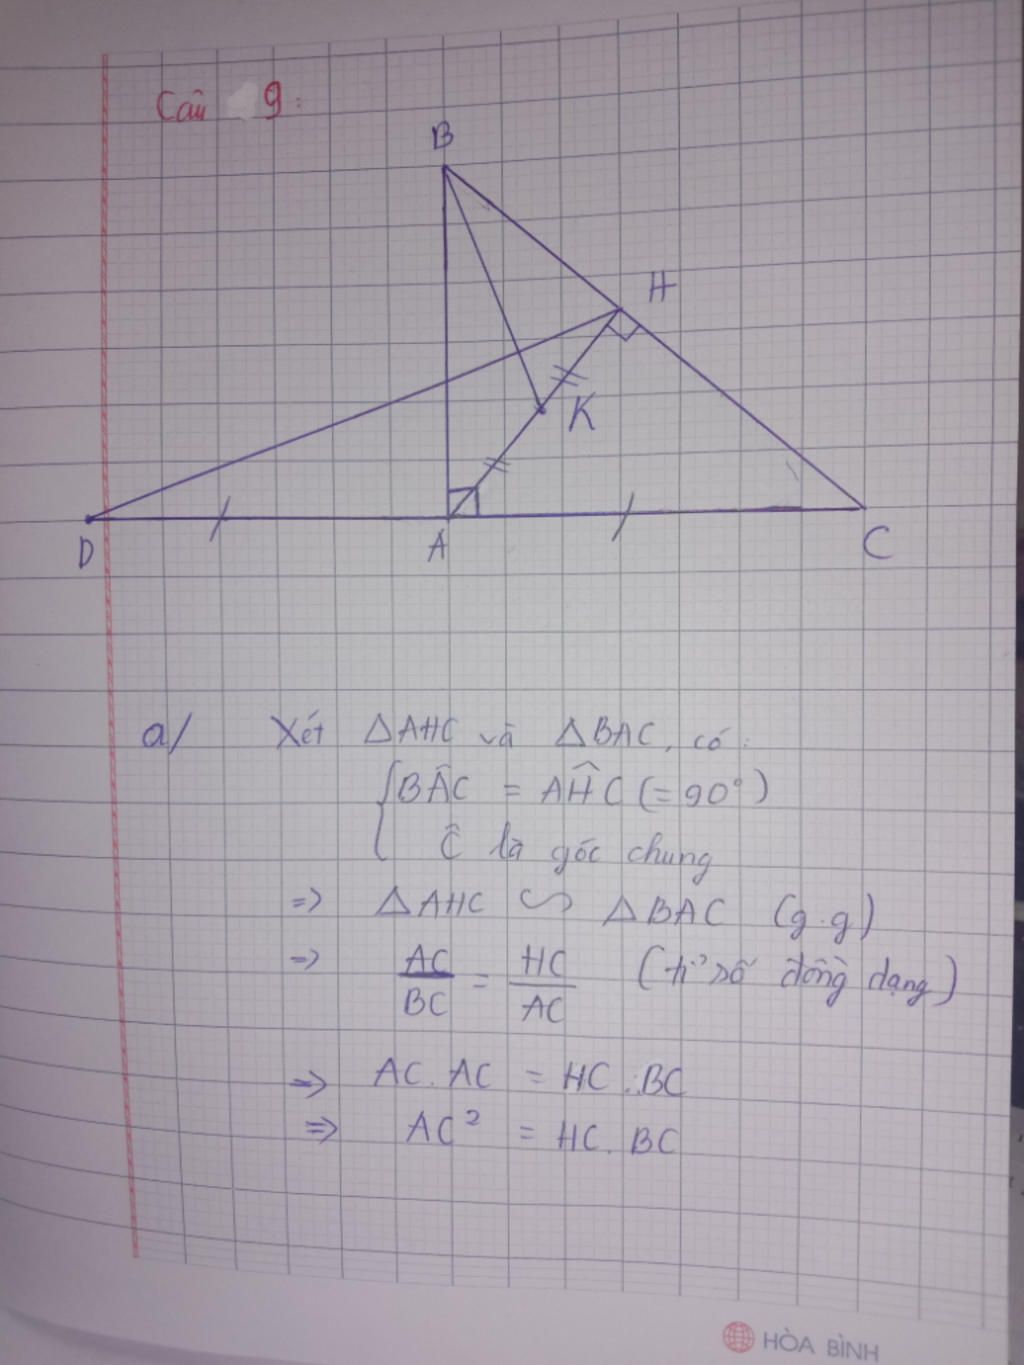 Câu 9:
B
H
K
D
A
C
a/ Xét △AHC và △BAC, có:
BÂC = AĤC (= 90°)
Ĉ là góc chung
=> △AHC ∽ △BAC (g.g)
=> AC/BC = HC/AC (tỉ số đồng dạng)
=> AC. AC = HC . BC
=> AC² = HC. BC
HÒA BÌNH